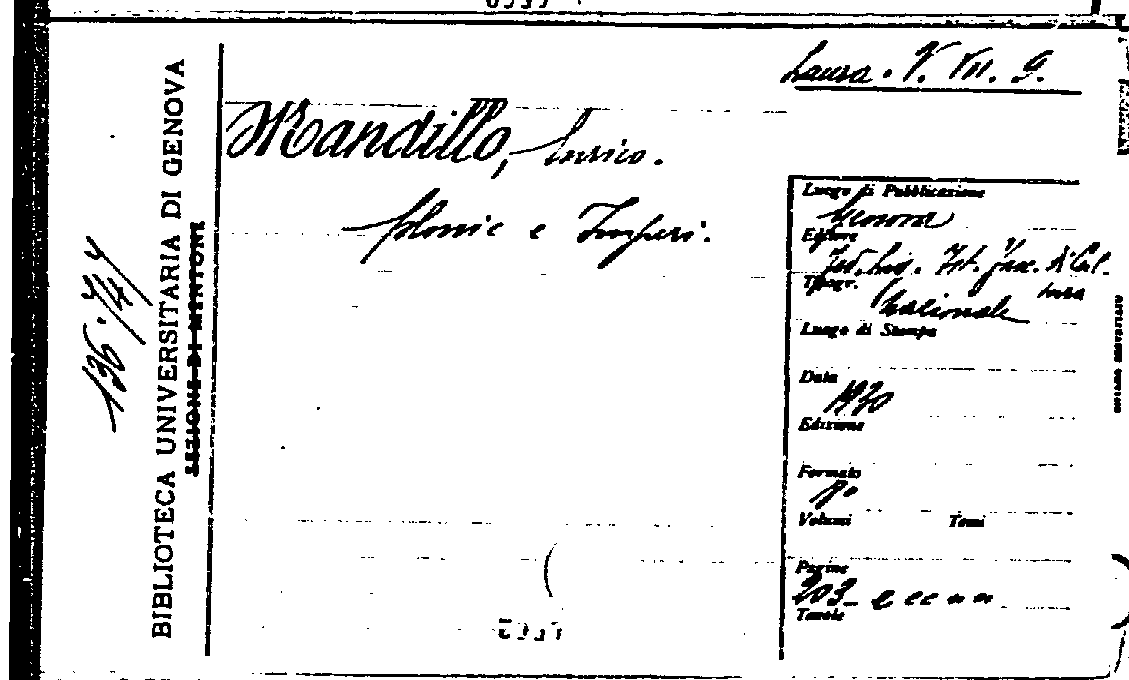 Laura. V. VII. 9.
Mandillo, Enrico.
Colonie e Imperi.
BIBLIOTECA UNIVERSITARIA DI GENOVA
SEZIONE DI MENTONE
Luogo di Pubblicazione
Genova
Editore
Fed. Lig. Ist. Fasc. di Cul-
tura
Tipogr.
Nazionale
Luogo di Stampa
Data
1930
Edizione
Formato
8°
Volumi Tomi
Pagine
203
Tavole